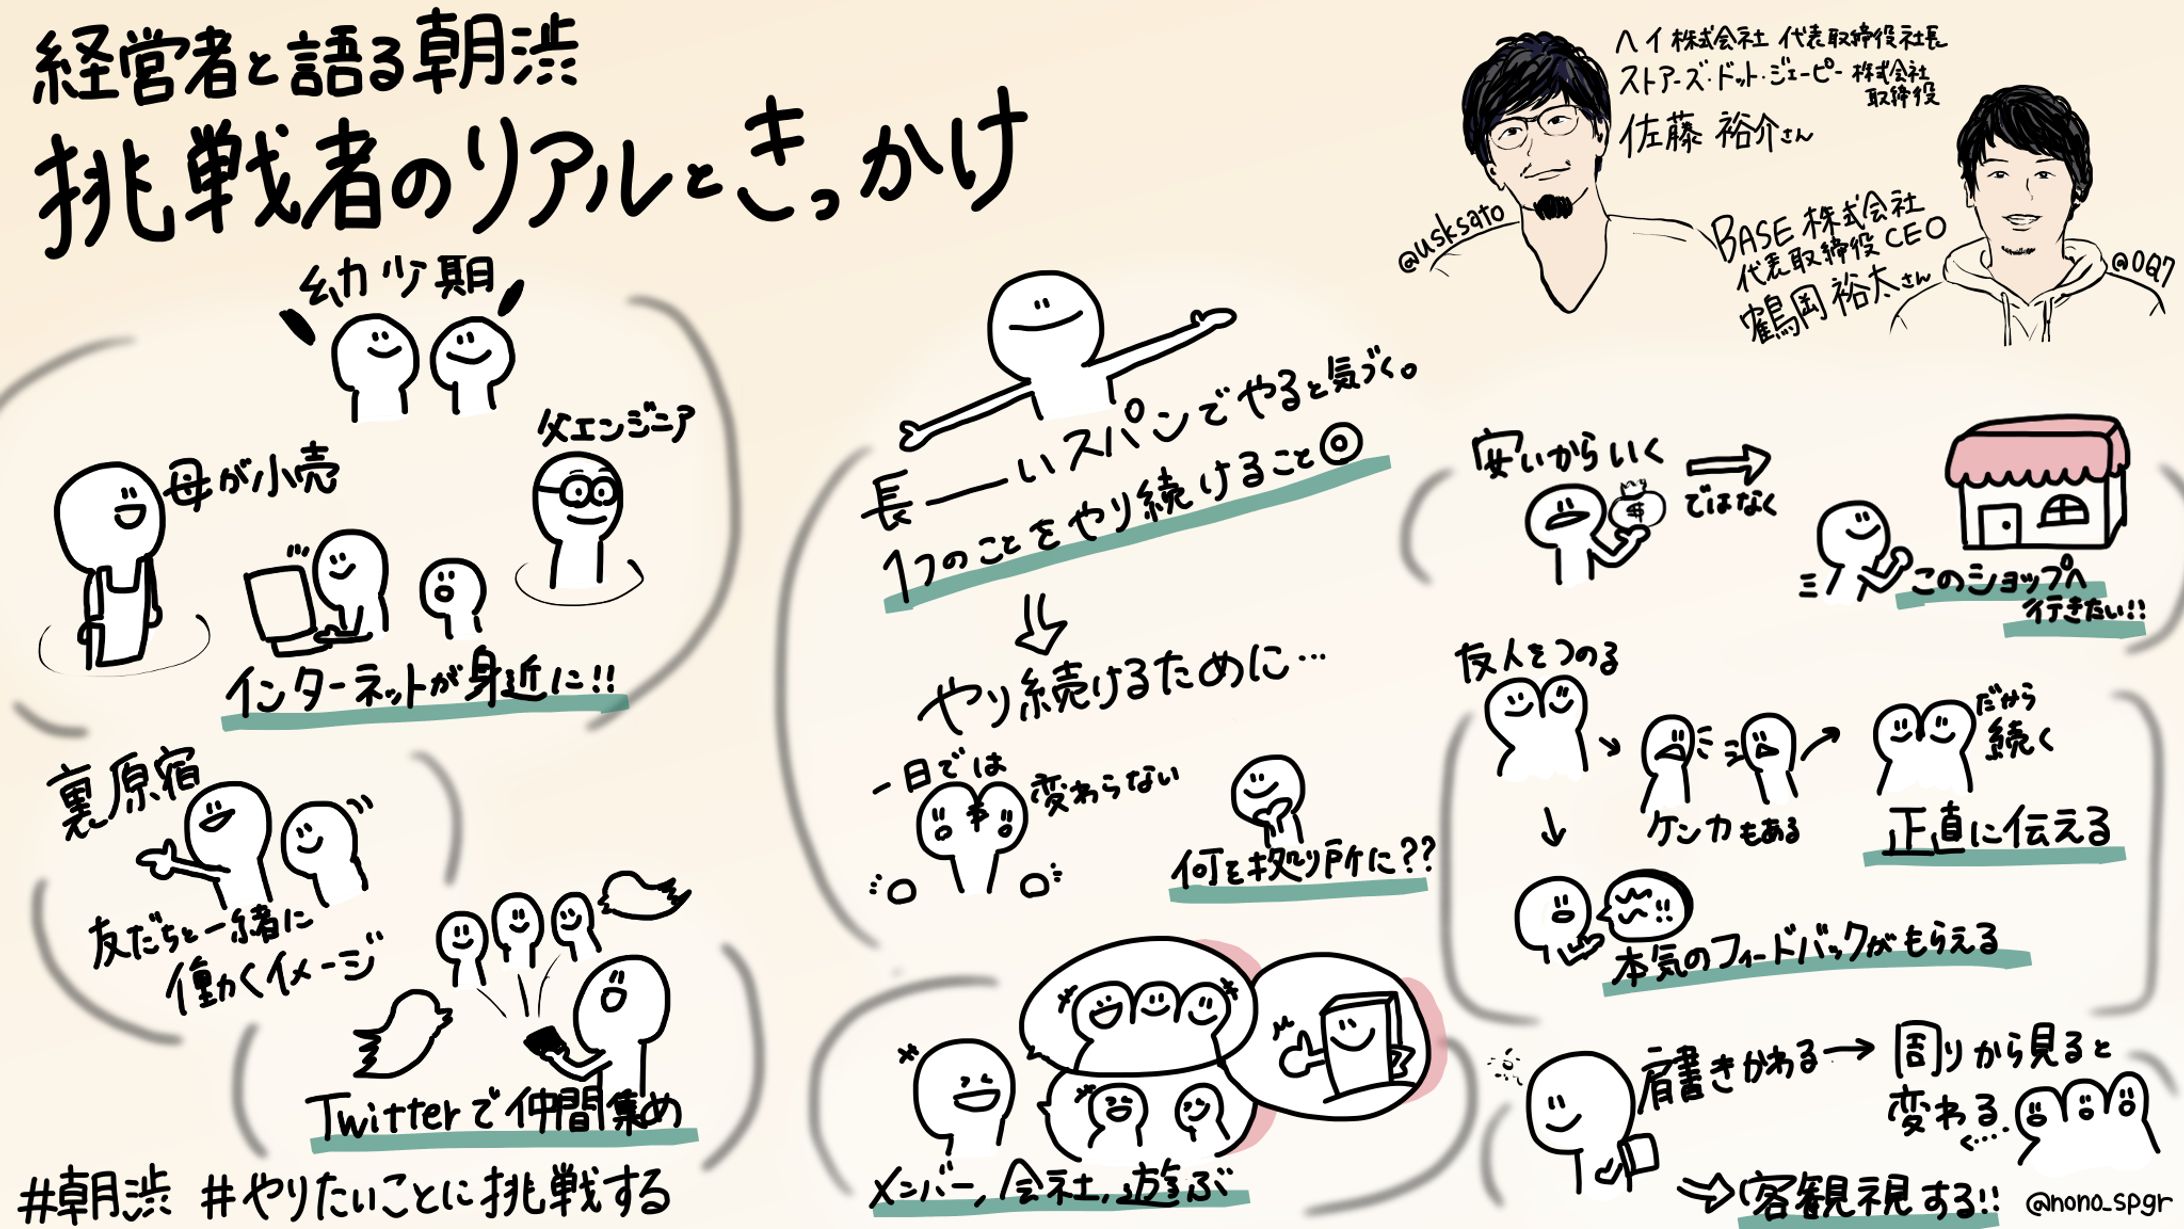 経営者と語る朝渋
挑戦者のリアルときっかけ
ヘイ株式会社 代表取締役社長
ストアーズ・ドット・ジェーピー 株式会社
取締役
佐藤 裕介さん
@usksato
BASE 株式会社
代表取締役 CEO
鶴岡 裕太さん
@0Q7
幼少期
母が小売
父エンジニア
インターネットが身近に!!
裏原宿
友だちと一緒に
働くイメージ
Twitterで仲間集め
#朝渋 #やりたいことに挑戦する
長ーいスパンでやると気づく。
1つのことをやり続けること◎
やり続けるために…
一日では
変わらない
何を拠り所に??
メンバー, 会社, 遊ぶ
安いからいく
ではなく
このショップへ
行きたい!!
友人をつのる
ケンカもある
だから
続く
正直に伝える
本気のフィードバックがもらえる
肩書きかわる→周りから見ると
変わる
客観視する!!
@nono_spgr